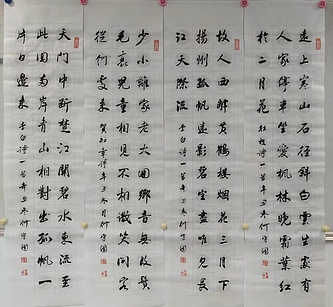 遠上寒山石径斜白雲生處有
人家停車坐愛楓林晚霜葉紅
於二月花 杜牧詩一首辛丑冬月何
故人西辞黄鶴樓烟花三月下
揚州孤帆遠影碧空盡唯見長
江天際流 李白詩一首辛丑冬月何
少小離家老大回鄉音無改鬢
毛衰兒童相見不相識笑問客
從何處來 賀知章詩辛丑冬月何
天門中斷楚江開碧水東流至
此回兩岸青山相對出孤帆一
片日邊來 李白詩一首辛丑冬月何